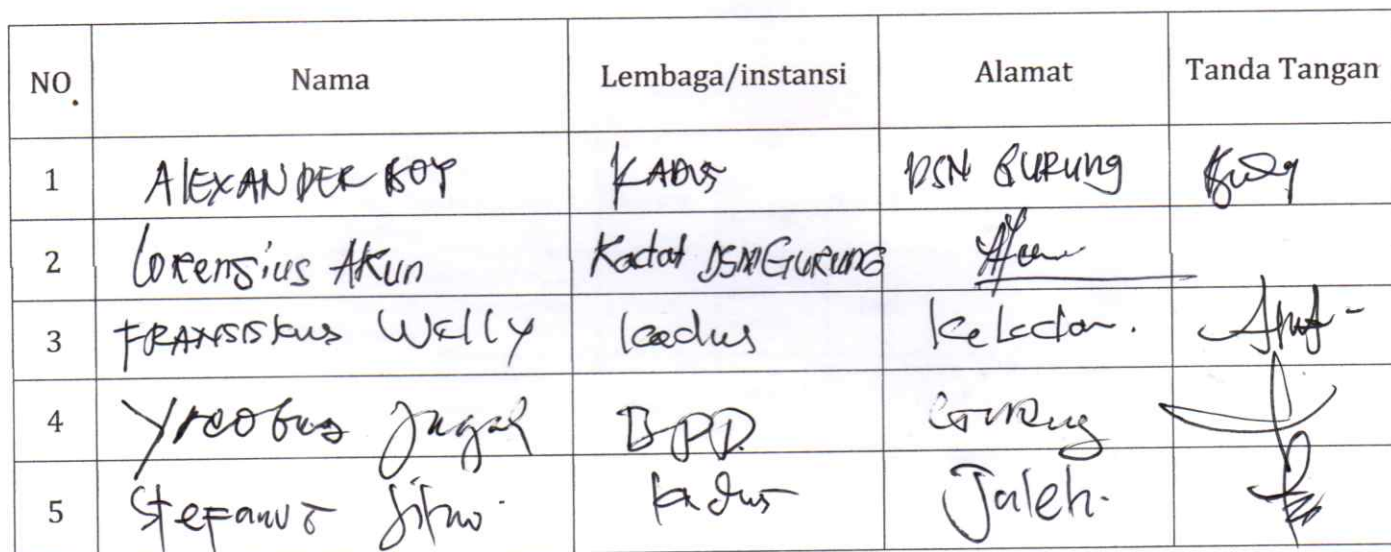 NO. Nama Lembaga/instansi Alamat Tanda Tangan
1 AlEXANDER BOY KADUS DSN GURUNG
2 Lorensius Akun Kadat DSN GURUNG
3 FRANSISkus Welly kadus Keladan.
4 Yacobus Jugah BPD Gurung
5 Stefanus kadus Jaleh.